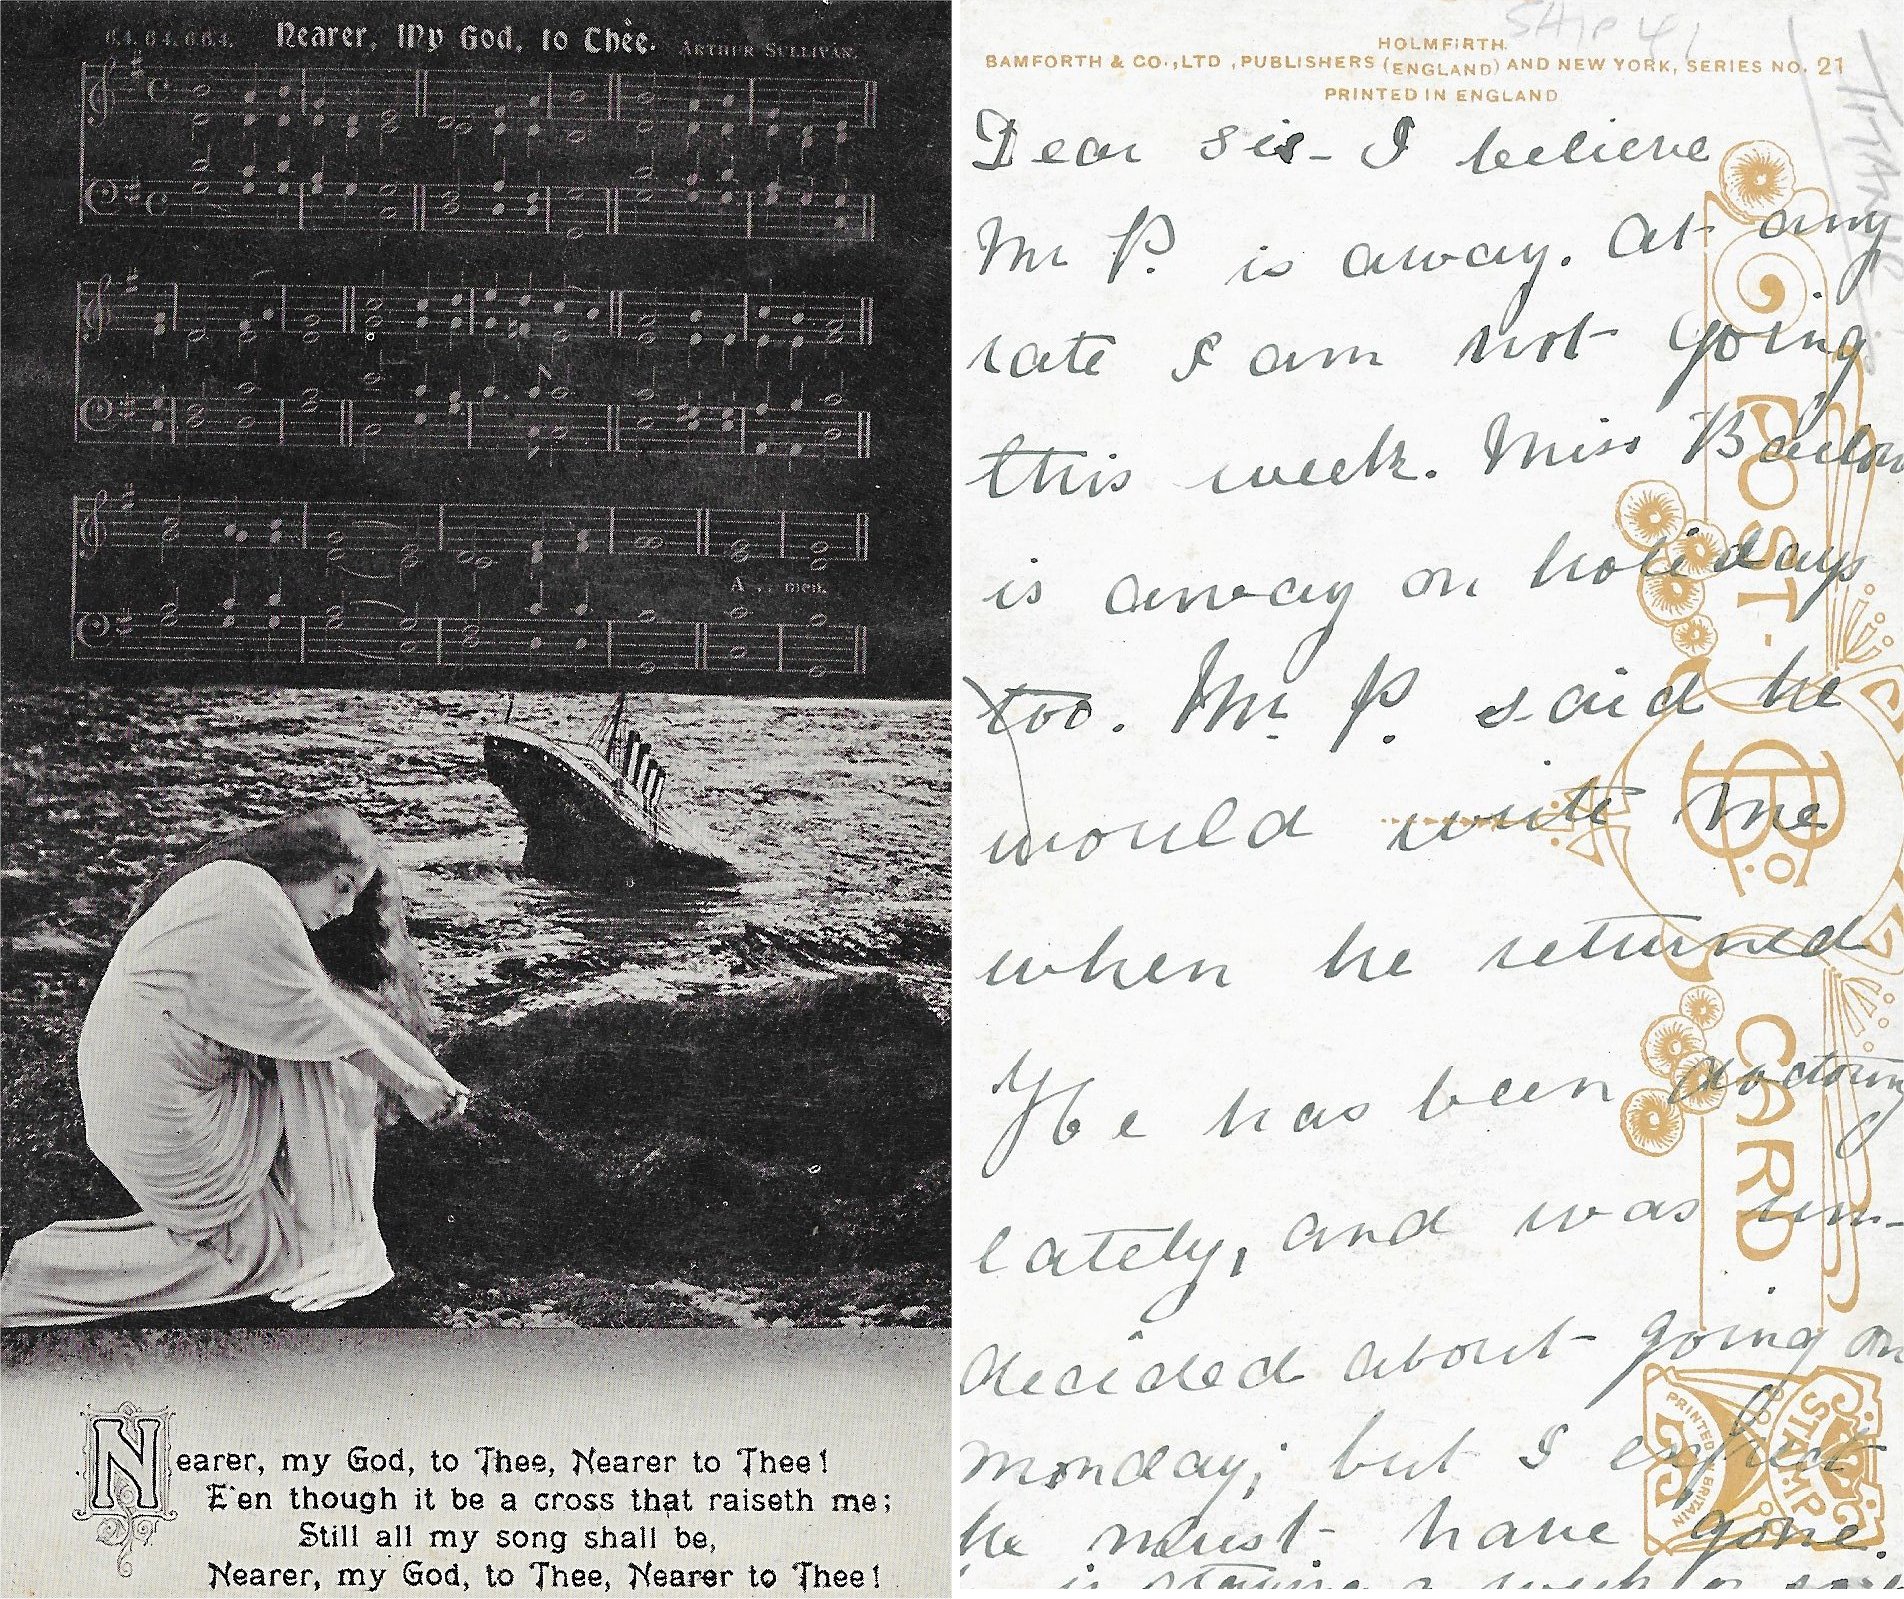 6.4. 6 4. 6.6.4. Nearer, My God, to Thee. ARTHUR SULLIVAN.
A . . men.
Nearer, my God, to Thee, Nearer to Thee!
E'en though it be a cross that raiseth me;
Still all my song shall be,
Nearer, my God, to Thee, Nearer to Thee!
SHIP 41
TITANIC
HOLMFIRTH
BAMFORTH & CO., LTD, PUBLISHERS (ENGLAND) AND NEW YORK, SERIES NO. 21
PRINTED IN ENGLAND
POST-CARD
Dear Sis - I believe
Mr P. is away. At any
rate I am not going
this week. Miss Barlow
is away on holidays
too. Mr. P. said he
would write me
when he returned
He has been doctoring
lately, and was un-
decided about going on
Monday; but I expect
he must have gone.
is staying a week or
PRINTED IN BRITAIN
STAMP